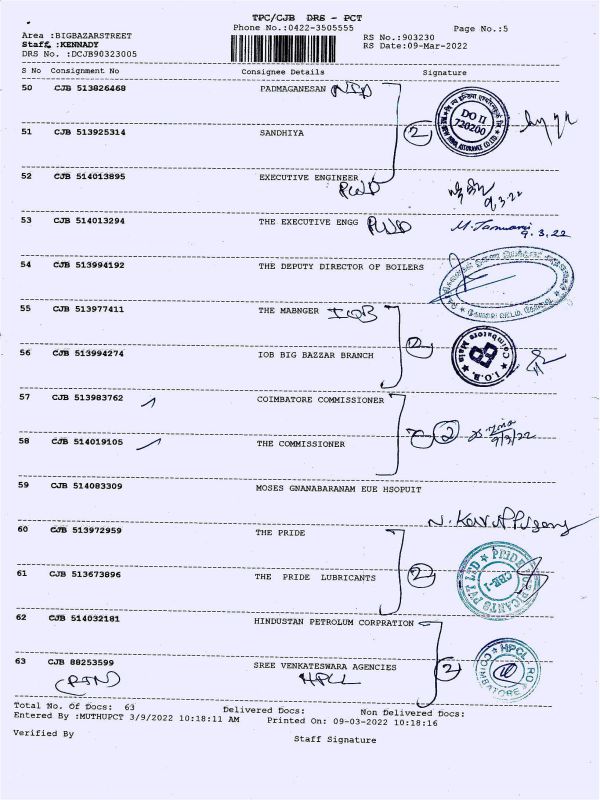 TPC/CJB DRS - PCT
Phone No.:0422-3505555 Page No.:5
Area :BIGBAZARSTREET RS No.:903230
Staff :KENNADY RS Date:09-Mar-2022
DRS No. :DCJB90323005
S No Consignment No Consignee Details Signature
50 CJB 513826468 PADMAGANESAN
DO II
720200
51 CJB 513925314 SANDHIYA 2
52 CJB 514013895 EXECUTIVE ENGINEER PWD
9.3.22
53 CJB 514013294 THE EXECUTIVE ENGG PWD
9.3.22
54 CJB 513994192 THE DEPUTY DIRECTOR OF BOILERS
55 CJB 513977411 THE MABNGER IOB
Coimbatore Main
I.O.B.
56 CJB 513994274 IOB BIG BAZZAR BRANCH
57 CJB 513983762 COIMBATORE COMMISSIONER
2
9/3/22
58 CJB 514019105 THE COMMISSIONER
59 CJB 514083309 MOSES GNANABARANAM EUE HSOPUIT
60 CJB 513972959 THE PRIDE
PRIDE LUBRICANTS PVT LTD
CBE-1
61 CJB 513673896 THE PRIDE LUBRICANTS 2
62 CJB 514032181 HINDUSTAN PETROLUM CORPRATION
HPCL
COIMBATORE RO
63 CJB 88253599 SREE VENKATESWARA AGENCIES 2
HPCL
Total No. Of Docs: 63 Delivered Docs: Non Delivered Docs:
Entered By :MUTHUPCT 3/9/2022 10:18:11 AM Printed On: 09-03-2022 10:18:16
Verified By Staff Signature